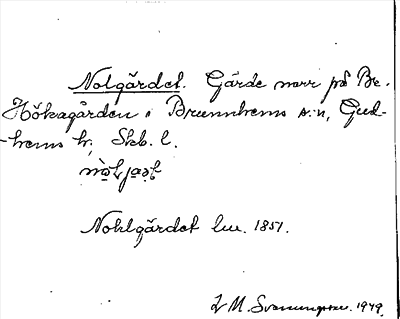 Nolgärdet. Gärde norr på Br.
Hökagården i Brunnhems s:n, Gud-
-hems hd, Skb. l.
Nohlgärdet lm. 1851.
I M. Svenungsson. 1949.